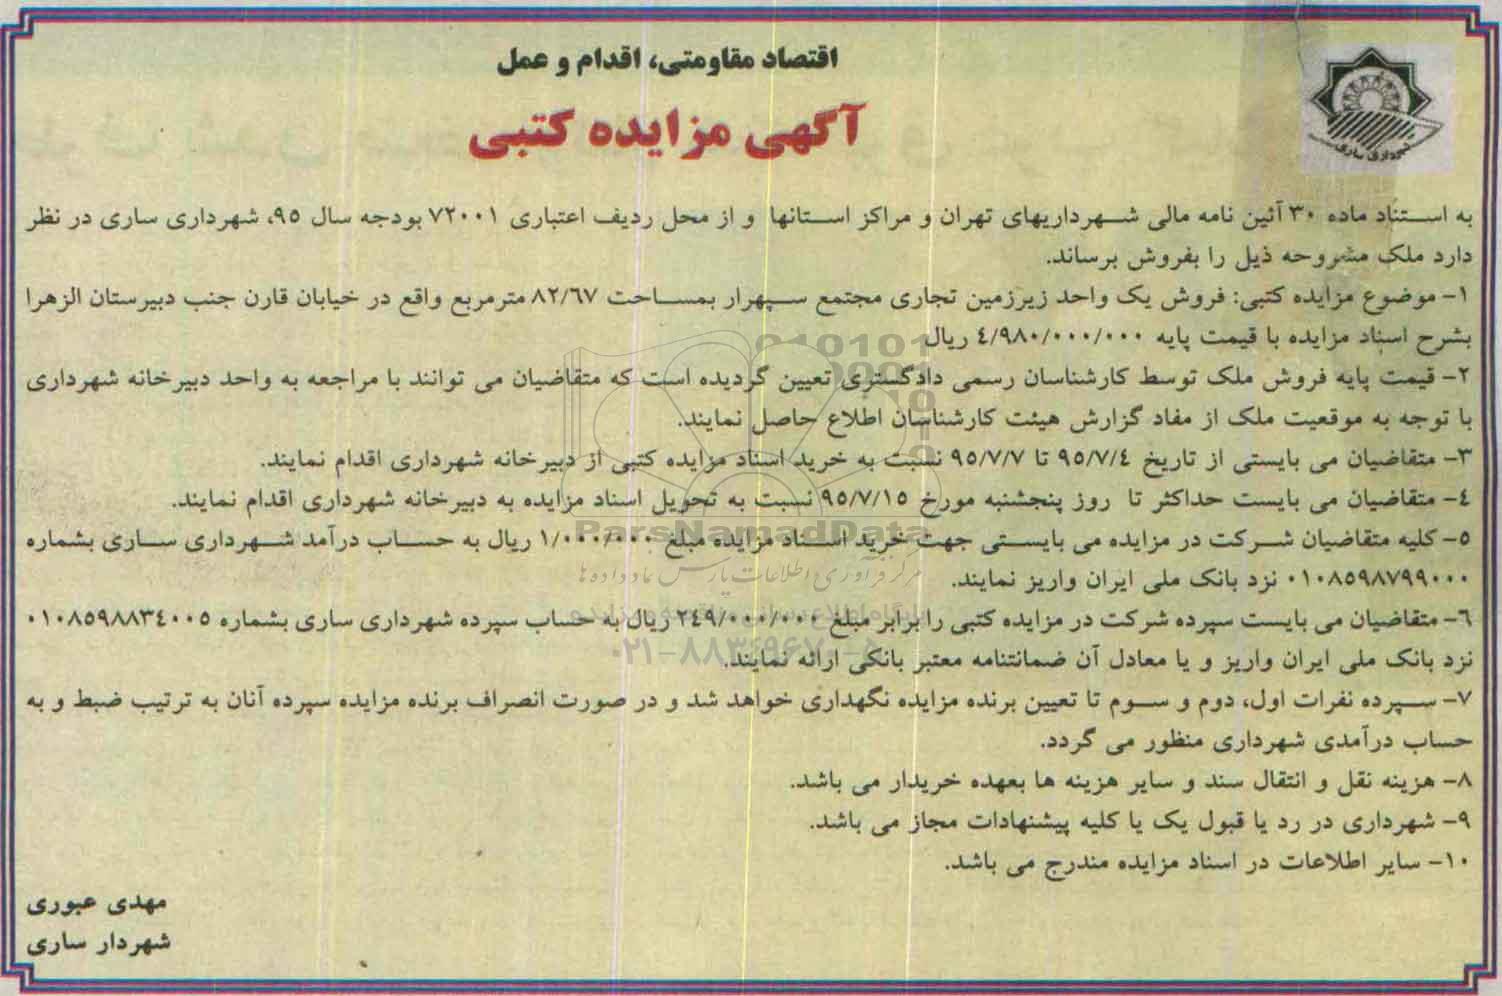 اقتصاد مقاومتی، اقدام و عمل
آگهی مزایده کتبی
شهرداری ساری
به استناد ماده ۳۰ آئین نامه مالی شهرداریهای تهران و مراکز استانها و از محل ردیف اعتباری ۷۲۰۰۱ بودجه سال ۹۵، شهرداری ساری در نظر
دارد ملک مشروحه ذیل را بفروش برساند.
۱- موضوع مزایده کتبی: فروش یک واحد زیرزمین تجاری مجتمع سپهرار بمساحت ۸۲/۶۷ مترمربع واقع در خیابان قارن جنب دبیرستان الزهرا
بشرح اسناد مزایده با قیمت پایه ۴/۹۸۰/۰۰۰/۰۰۰ ریال
۲- قیمت پایه فروش ملک توسط کارشناسان رسمی دادگستری تعیین گردیده است که متقاضیان می توانند با مراجعه به واحد دبیرخانه شهرداری
با توجه به موقعیت ملک از مفاد گزارش هیئت کارشناسان اطلاع حاصل نمایند.
۳- متقاضیان می بایستی از تاریخ ۹۵/۷/۴ تا ۹۵/۷/۷ نسبت به خرید اسناد مزایده کتبی از دبیرخانه شهرداری اقدام نمایند.
۴- متقاضیان می بایست حداکثر تا روز پنجشنبه مورخ ۹۵/۷/۱۵ نسبت به تحویل اسناد مزایده به دبیرخانه شهرداری اقدام نمایند.
ParsNamadData
۵- کلیه متقاضیان شرکت در مزایده می بایستی جهت خرید اسناد مزایده مبلغ ۱/۰۰۰/۰۰۰ ریال به حساب درآمد شهرداری ساری بشماره
مرکز فرآوری اطلاعات پارس نماد داده ها
۰۱۰۸۵۹۸۷۹۹۰۰۰ نزد بانک ملی ایران واریز نمایند.
۶- متقاضیان می بایست سپرده شرکت در مزایده کتبی را برابر مبلغ ۲۴۹/۰۰۰/۰۰۰ ریال به حساب سپرده شهرداری ساری بشماره ۰۱۰۸۵۹۸۸۳۴۰۰۵
۰۲۱-۸۸۳۴۹۶۷۰-۵
نزد بانک ملی ایران واریز و یا معادل آن ضمانتنامه معتبر بانکی ارائه نمایند.
۷- سپرده نفرات اول، دوم و سوم تا تعیین برنده مزایده نگهداری خواهد شد و در صورت انصراف برنده مزایده سپرده آنان به ترتیب ضبط و به
حساب درآمدی شهرداری منظور می گردد.
۸- هزینه نقل و انتقال سند و سایر هزینه ها بعهده خریدار می باشد.
۹- شهرداری در رد یا قبول یک یا کلیه پیشنهادات مجاز می باشد.
۱۰- سایر اطلاعات در اسناد مزایده مندرج می باشد.
مهدی عبوری
شهردار ساری